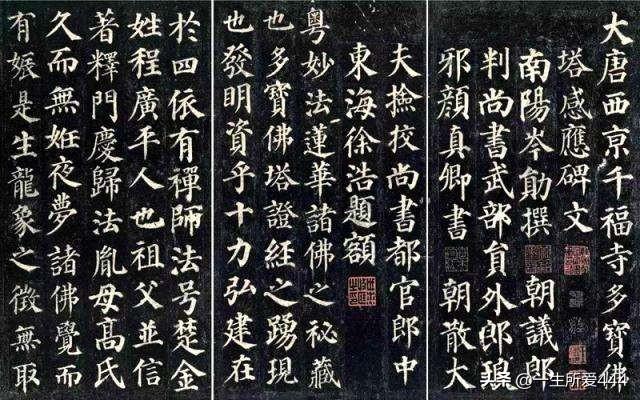 大唐西京千福寺多寶佛
塔感應碑文
南陽岑勛撰 朝議郎
判尚書武部員外郎琅
邪顏真卿書 朝散大
夫撿挍尚書都官郎中
東海徐浩題額
粵妙法蓮華諸佛之秘藏
也多寶佛塔證經之踴現
也發明資乎十力弘建在
於四依有禪師法号楚金
姓程廣平人也祖父並信
著釋門慶歸法胤母高氏
久而無妊夜夢諸佛覺而
有娠是生龍象之徵無取
头条 @一生所爱444